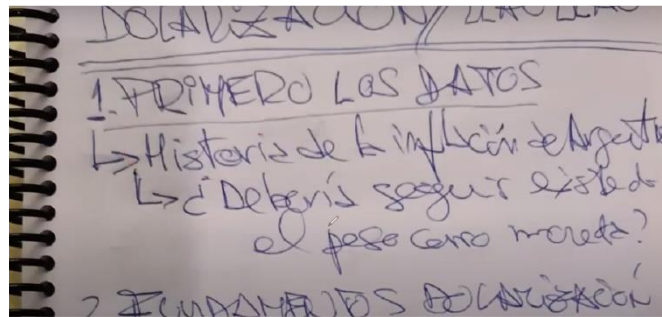 DOLARIZACIÓN/
1. PRIMERO LOS DATOS
↳ Historia de la inflación de Argenti
↳ ¿Debería seguir existiendo
el peso como moneda?
2 FUNDAMENTOS DOLARIZACIÓN